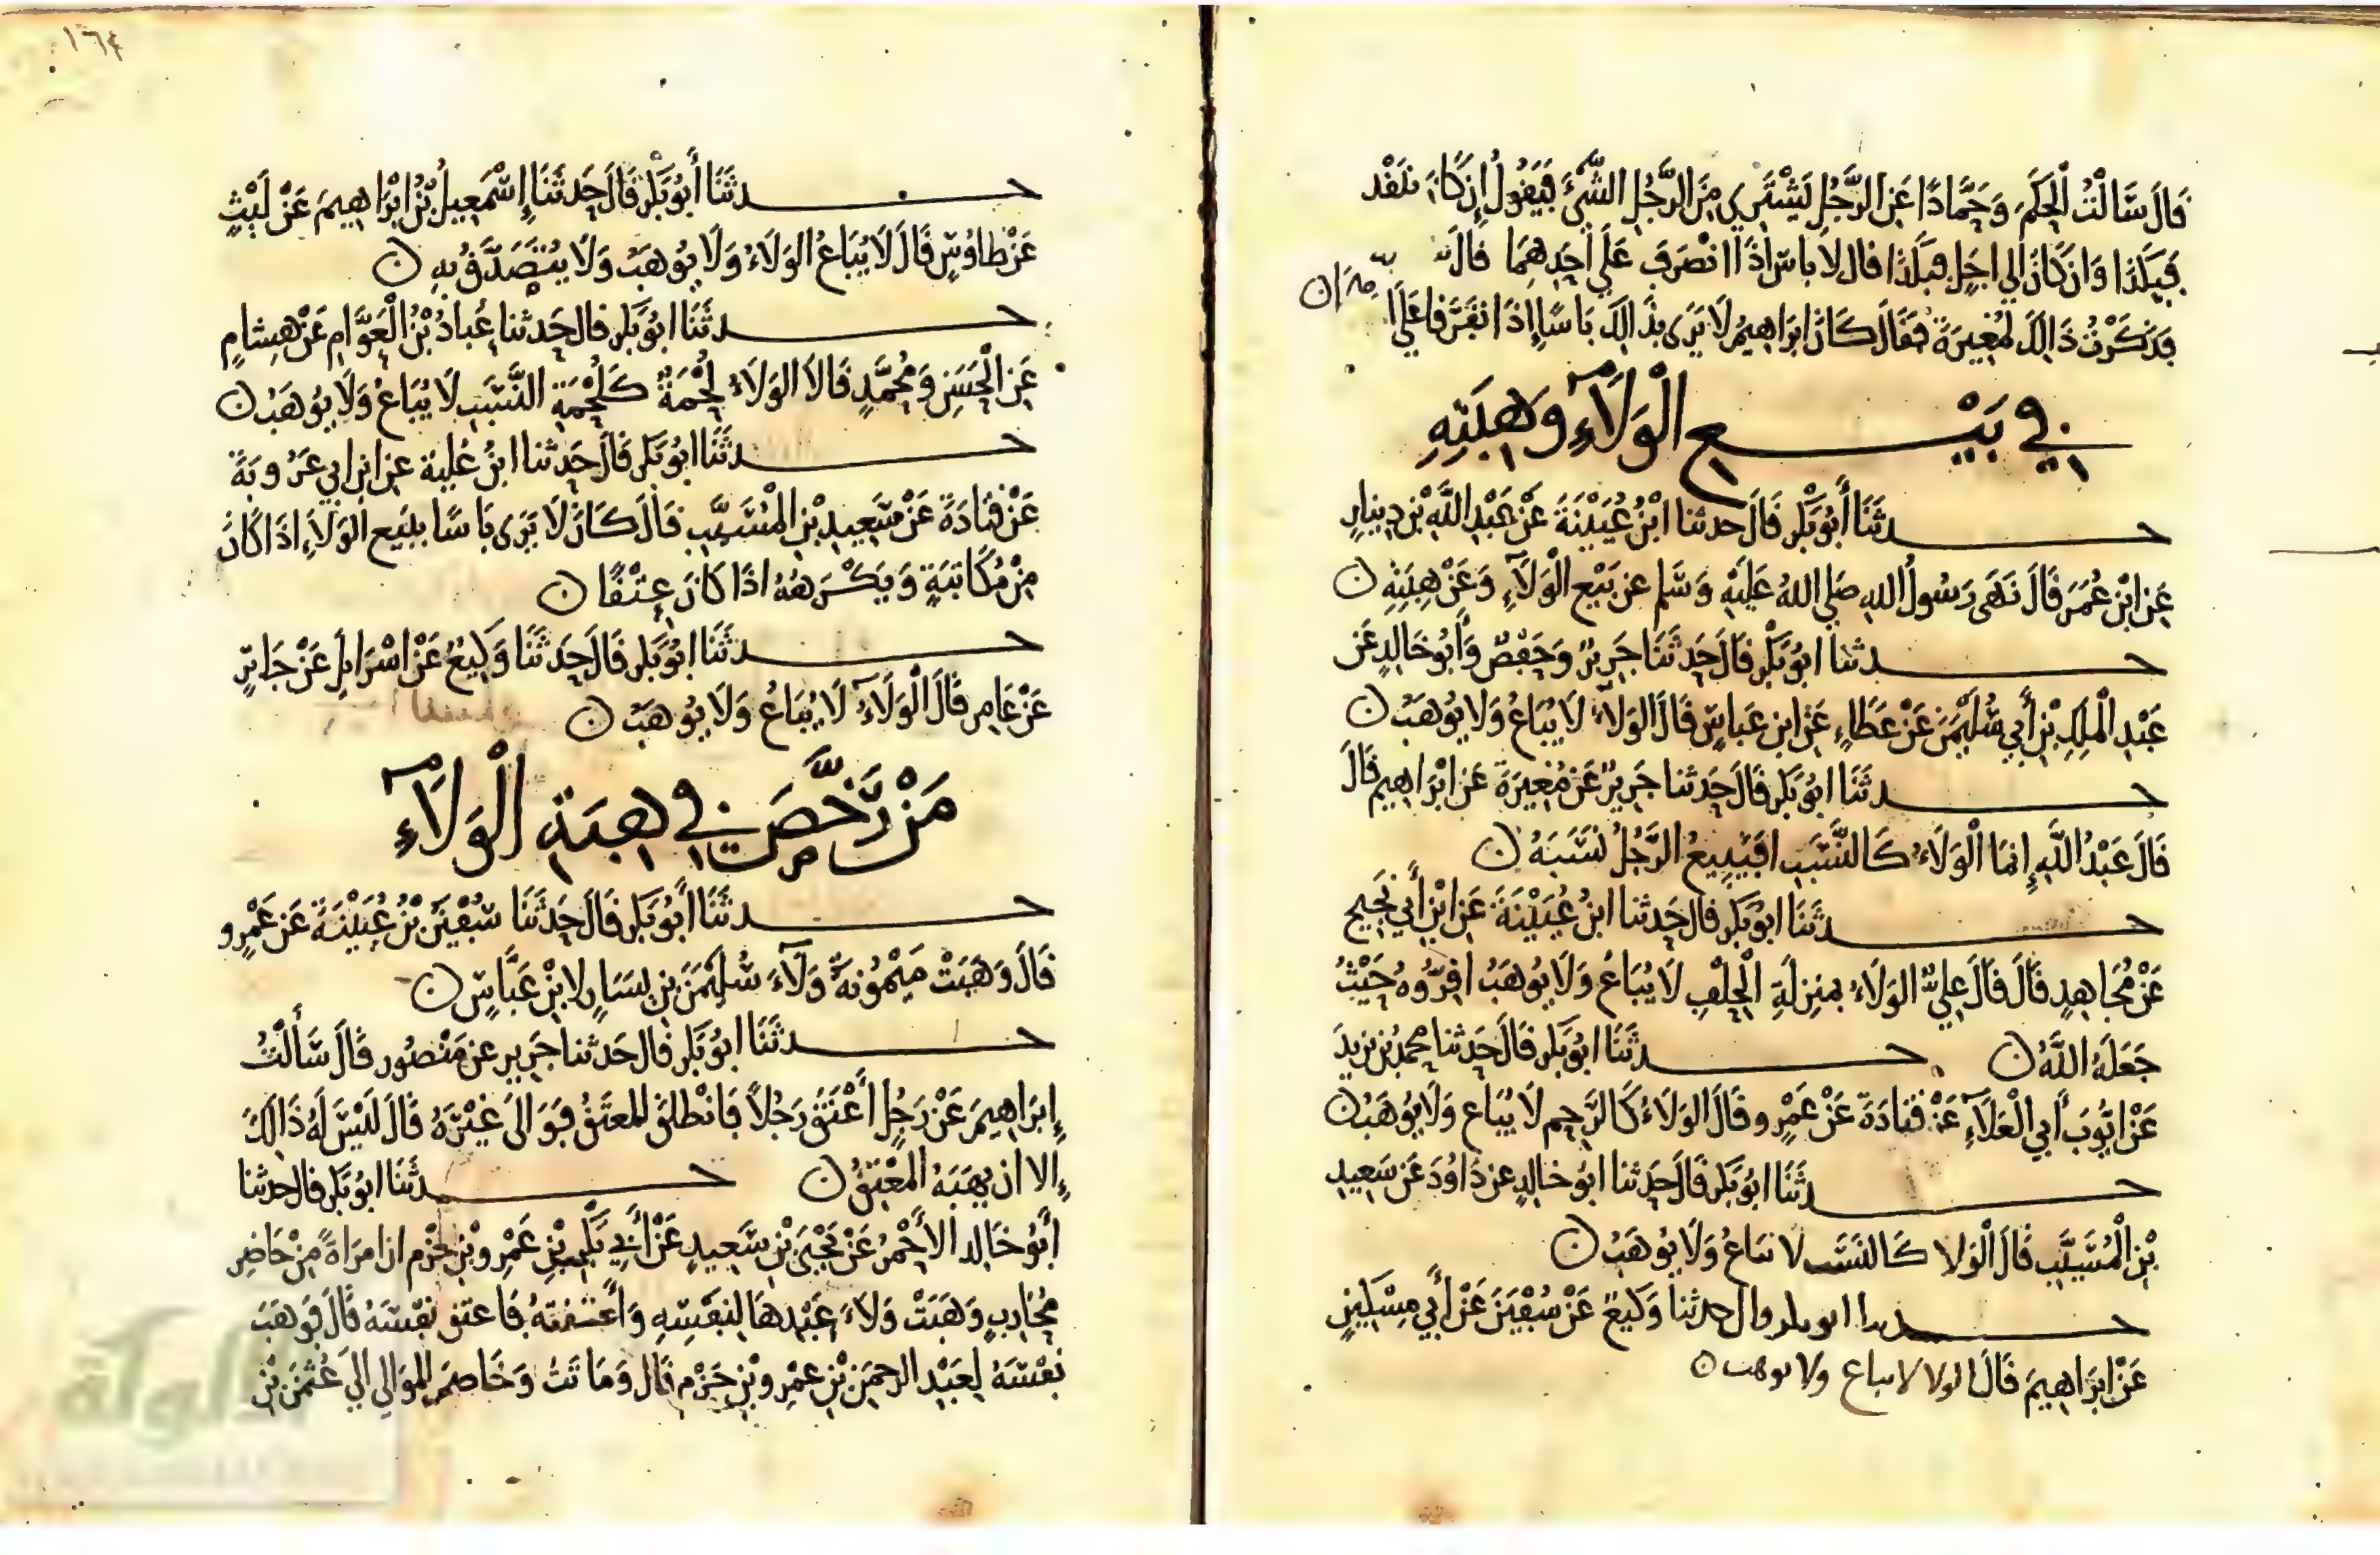 قَالَ سَأَلْتُ الْحَكَمَ وَحَمَّادًا عَنِ الرَّجُلِ يَشْتَرِي مِنَ الرَّجُلِ الشَّيْءَ فَيَقُولُ إِنْ كَانَ بنَقْد
فَبِكَذَا وَإِنْ كَانَ إلى أجَلٍ فَبِكَذَا قال لَا باسَ إذَا انْصَرَفَ عَلَى أحَدِهِمَا قال
فَذَكَرْتُ ذَالِكَ لمُغِيرَةَ فَقَالَ كَانَ ابْرَاهِيمُ لَا يَرَى بذَالِكَ بَاسًا إِذَا تَفَرَّقا عَلَى
فِي بَيْعِ الْوَلَآءِ وَهِبَتِهِ
حدثَنَا أَبُو بَكْرٍ قَالَ حدثنا ابْنُ عُيَيْنَةَ عَنْ عَبْدِ اللَّهِ بْنِ دِينَارٍ
عَنِ ابْنِ عُمَرَ قَالَ نَهَى رَسُولُ اللهِ صَلي اللهُ عَلَيْهِ وَسَلم عن بَيْعِ الْوَلَآءِ وَعَنْ هِبَتِهِ ن
حدثنا ابُو بَكْرٍ قَالَ حَدثَنَا جَرِيرٌ وَحَفْصٌ وَأَبُو خَالِدٍ عَن
عَبْدِ الْمَلِكِ بْنِ أَبِي سُلَيْمَنَ عَنْ عَطَاءٍ عَنِ ابنِ عَباسٍ قَالَ الوَلَآءُ لَا يُبَاعُ وَلَا يُوهَبُ ن
حدثَنَا ابُو بَكْرٍ قَالَ حَدثنا جَرِيرٌ عَنْ مُغِيرَةَ عَن ابْرَاهِيمَ قَالَ
قَالَ عَبْدُ اللَّهِ إنمَا الْوَلَاءُ كَالنَّسَبِ افَيَبِيعُ الرَّجُلُ نَسَبَهُ ن
حدثَنَا ابُو بَكْرٍ قَالَ حَدثنا ابنُ عُيَيْنَةَ عَنِ ابْنِ أَبِي نَجِيحٍ
عَنْ مُجَاهِدٍ قَالَ قَالَ عَلِيٌّ الوَلَاءُ بمَنزِلَةِ الْحِلْفِ لَا يُبَاعُ وَلَا يُوهَبُ اقِرُّوهُ حَيْثُ
جَعَلَهُ اللَّهُ ن حدثَنَا ابُو بَكْرٍ قَالَ حَدثنا محمدُ بْنُ يَزِيدَ
عَنْ ايُّوبَ أَبي الْعَلَآءِ عَنْ قَتَادَةَ عَنْ عَمْرٍو قَالَ الوَلَاءُ كَالرَّحِمِ لَا يُبَاع وَلَا يُوهَبُ ن
حدثَنَا ابُو بَكْرٍ قَالَ حَدثنا ابُو خَالِدٍ عن دَاوُدَ عَن سَعِيدِ
بْنِ الْمُسَيَّبِ قَالَ الْوَلا كَالنسَب لا يباعُ وَلَا يُوهَبُ ن
حدثنا ابو بكر قال حدثنا وَكِيعٌ عَنْ سُفْيَنَ عَنْ أَبِي مِسْكِينٍ
عَنْ ابرَاهِيمَ قَالَ الولا لا يباع ولا يوهب ن
١٦٤
حدثَنَا أَبُو بَكْرٍ قَالَ حَدثَنَا إِسْمَعِيلُ بْنُ ابْرَاهِيمَ عَنْ لَيْثٍ
عَنْ طاوُسٍ قَالَ لَا يُبَاعُ الوَلَاءُ وَلَا يُوهَبُ وَلَا يُتَصَدَّقُ بِهِ ن
حدثَنَا ابُو بَكْرٍ قال حَدثنا عَبادُ بْنُ الْعَوَّامِ عَنْ هِشامٍ
عَنِ الْحَسَنِ وَمُحَمَّدٍ قَالَا الوَلَاءُ لُحْمَةٌ كَلُحْمَةِ النَّسَبِ لَا يُبَاعُ وَلَا يُوهَبُ ن
حدثَنَا ابُو بَكْرٍ قَالَ حَدثنا ابنُ عُلَيةَ عنِ ابنِ ابي عَرُوبَةَ
عَنْ قَتَادَةَ عَنْ سَعِيدِ بْنِ الْمُسَيَّبِ قَالَ كَانَ لَا يَرَى بَاسًا ببَيعِ الوَلَاءِ اذَا كَانَ
مِنْ مُكَاتَبَةٍ وَيَكْرَهُهُ اذَا كَانَ عِتْقًا ن
حدثَنَا ابُو بَكْرٍ قَالَ حَدثَنَا وَكِيعٌ عَنْ اسْرَايلَ عَنْ جَابِرٍ
عَنْ عَامِرٍ قَالَ الْوَلَآءُ لَا يُبَاعُ وَلَا يُوهَبُ ن
مَنْ رَّخَّصَ فِي هِبَةِ الْوَلَآءِ
حدثَنَا أَبُو بَكْرٍ قَالَ حَدثَنَا سُفْيَنُ بْنُ عُيَيْنَةَ عَن عَمْرٍو
قَالَ وَهَبَتْ مَيْمُونَةُ وَلَآءَ سُلَيْمَنَ بنِ يَسَارٍ لابْنِ عَبَّاسٍ ن
حدثَنَا ابُو بَكْرٍ قال حَدثنا جَرِير عن مَنْصُور قَالَ سَأَلْتُ
إِبرَاهِيمَ عَنْ رَجُلٍ أَعْتَقَ رَجُلاً فَانْطلَقَ المُعتَقُ فَوَالَى غَيْرَهُ قَالَ لَيْسَ لَهُ ذَالِكَ
إلا ان يهَبَهُ المُعْتِقُ ن حدثَنَا ابُو بَكْرٍ قال حدثنا
أَبُو خَالِد الأَحْمَرُ عَنْ يَحْيَى بْنِ سَعِيدٍ عَنْ أَبِي بَكْرِ بْنِ عَمْرِو بْنِ حَزْم ان امرَاةً مِنْ حَاضِرِ
مُحَارِبٍ وَهَبَتْ وَلَاءَ عَبْدِهَا لِنَفْسِهِ وَأَعْتَقَتْهُ فَاعتق نَفْسَهُ قَالَ فَوَهَبَ
نَفْسَهُ لِعَبْدِ الرحمَنِ بْنِ عَمْرِو بْنِ حَزْم قَال وَمَاتَتْ وَخَاصَمَ المَوَالي الى عُثمَنَ بْنِ
الألوكة